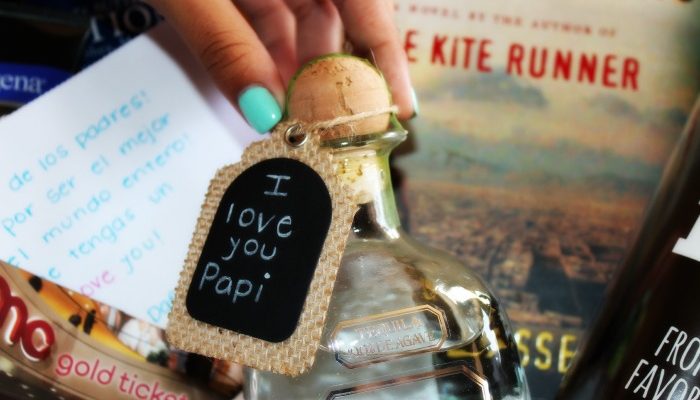 A NOVEL BY THE AUTHOR OF
E KITE RUNNER
ena
de los padres!
por ser el mejor
l mundo entero!
e tengas un
love you!
I
love
you
Papi
gold ticket
100% DE AGAVE
SSE
FRO
FAVO